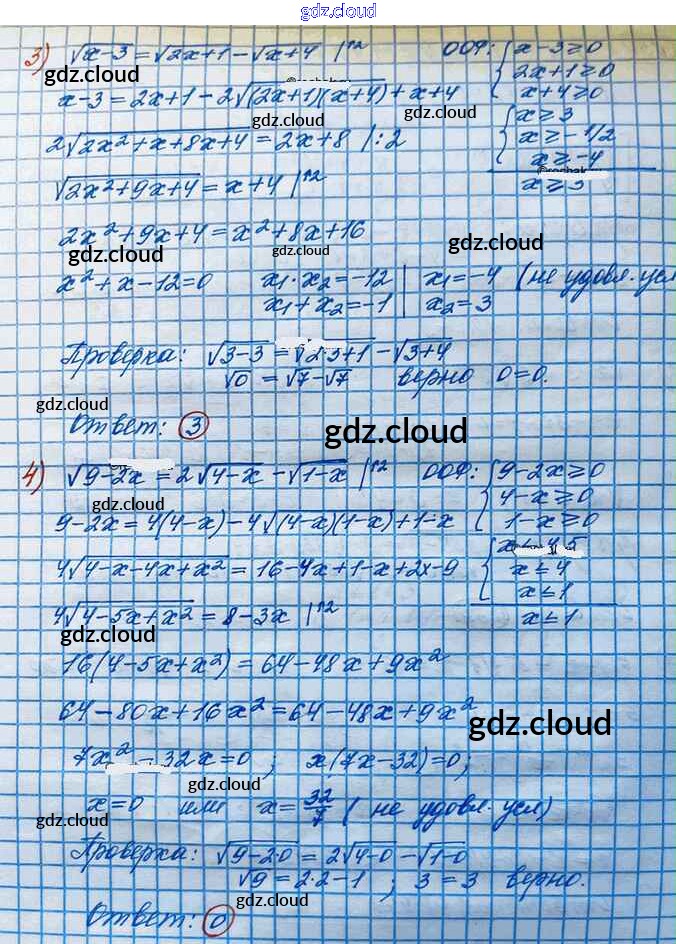 gdz.cloud
3) √x-3 = √2x+1 - √x+4 |^2 ООФ: { x-3≥0
2x+1≥0
x+4≥0
gdz.cloud
x-3 = 2x+1 - 2√(2x+1)(x+4) + x+4
{ x≥3
x≥-1/2
x≥-4
gdz.cloud gdz.cloud
2√2x²+x+8x+4 = 2x+8 |:2
x≥3
√2x²+9x+4 = x+4 |^2
gdz.cloud
2x²+9x+4 = x²+8x+16
gdz.cloud gdz.cloud gdz.cloud
x²+x-12=0 x₁·x₂=-12 | x₁=-4 (не удовл. усл
x₁+x₂=-1 | x₂=3
Проверка: √3-3 = √2·3+1 - √3+4
√0 = √7-√7 верно 0=0.
gdz.cloud
Ответ: 3
gdz.cloud
4) √9-2x = 2√4-x - √1-x |^2 ООФ: { 9-2x≥0
4-x≥0
1-x≥0
gdz.cloud
9-2x = 4(4-x) - 4√(4-x)(1-x) + 1-x
{ x≤4,5
x≤4
x≤1
4√4-x-4x+x² = 16-4x+1-x+2x-9
x≤1
4√4-5x+x² = 8-3x |^2
gdz.cloud
16(4-5x+x²) = 64-48x+9x²
64-80x+16x² = 64-48x+9x²
gdz.cloud
7x²-32x=0; x(7x-32)=0;
gdz.cloud
x=0 или x=32/7 (не удовл. усл)
gdz.cloud
Проверка: √9-2·0 = 2√4-0 - √1-0
√9 = 2·2-1; 3=3 верно.
gdz.cloud gdz.cloud
Ответ: 0
gdz.cloud